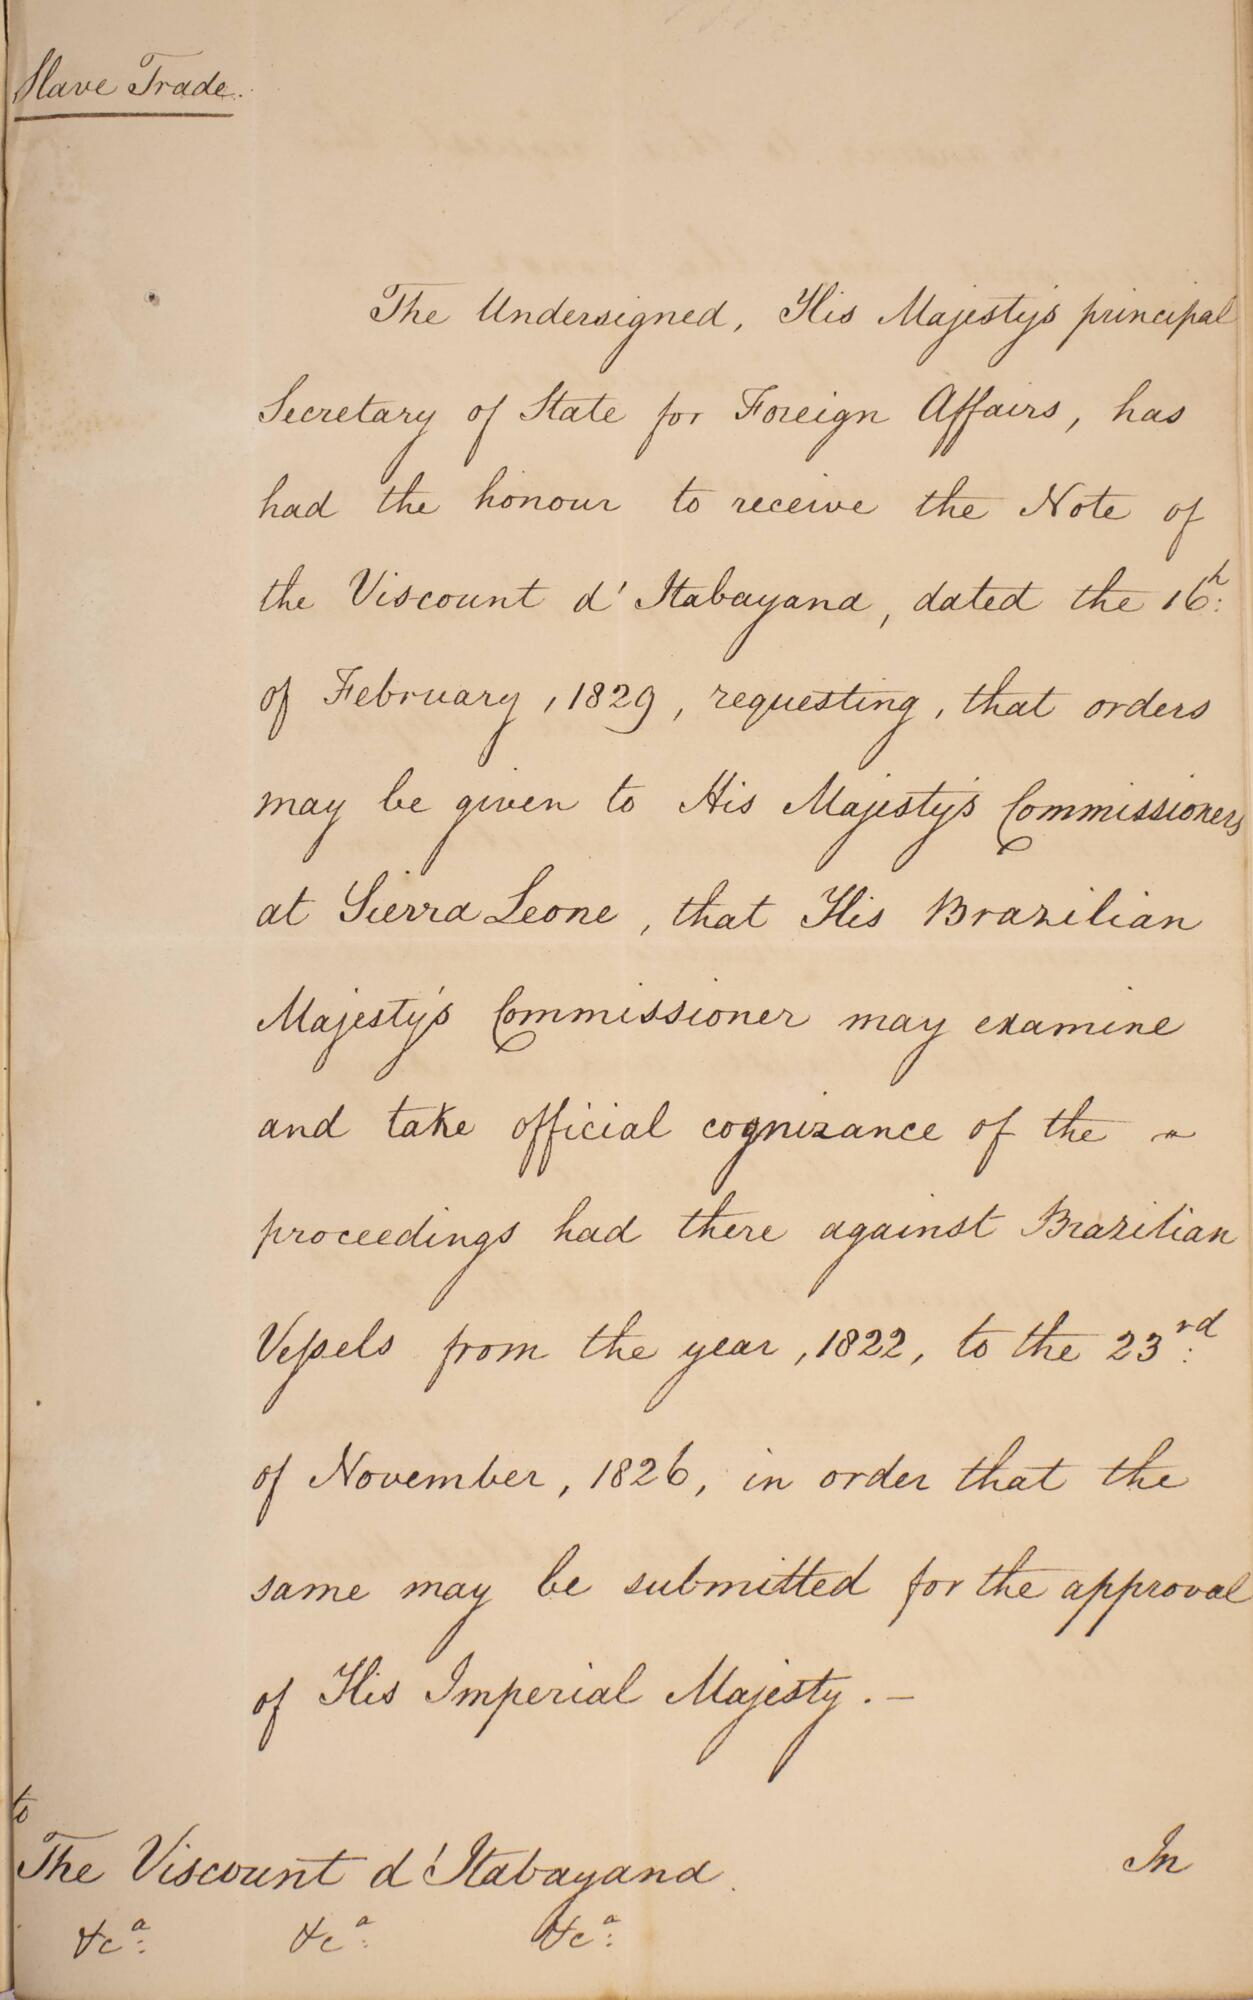 Slave Trade.
The Undersigned, His Majesty's principal
Secretary of State for Foreign Affairs, has
had the honour to receive the Note of
the Viscount d'Itabayana, dated the 16h:
of February, 1829, requesting, that orders
may be given to His Majesty's Commissioners
at Sierra Leone, that His Brazilian
Majesty's Commissioner may examine
and take official cognizance of the
proceedings had there against Brazilian
Vessels from the year, 1822, to the 23rd:
of November, 1826, in order that the
same may be submitted for the approval
of His Imperial Majesty. —
to
The Viscount d'Itabayana.
In
&ca: &ca: &ca: